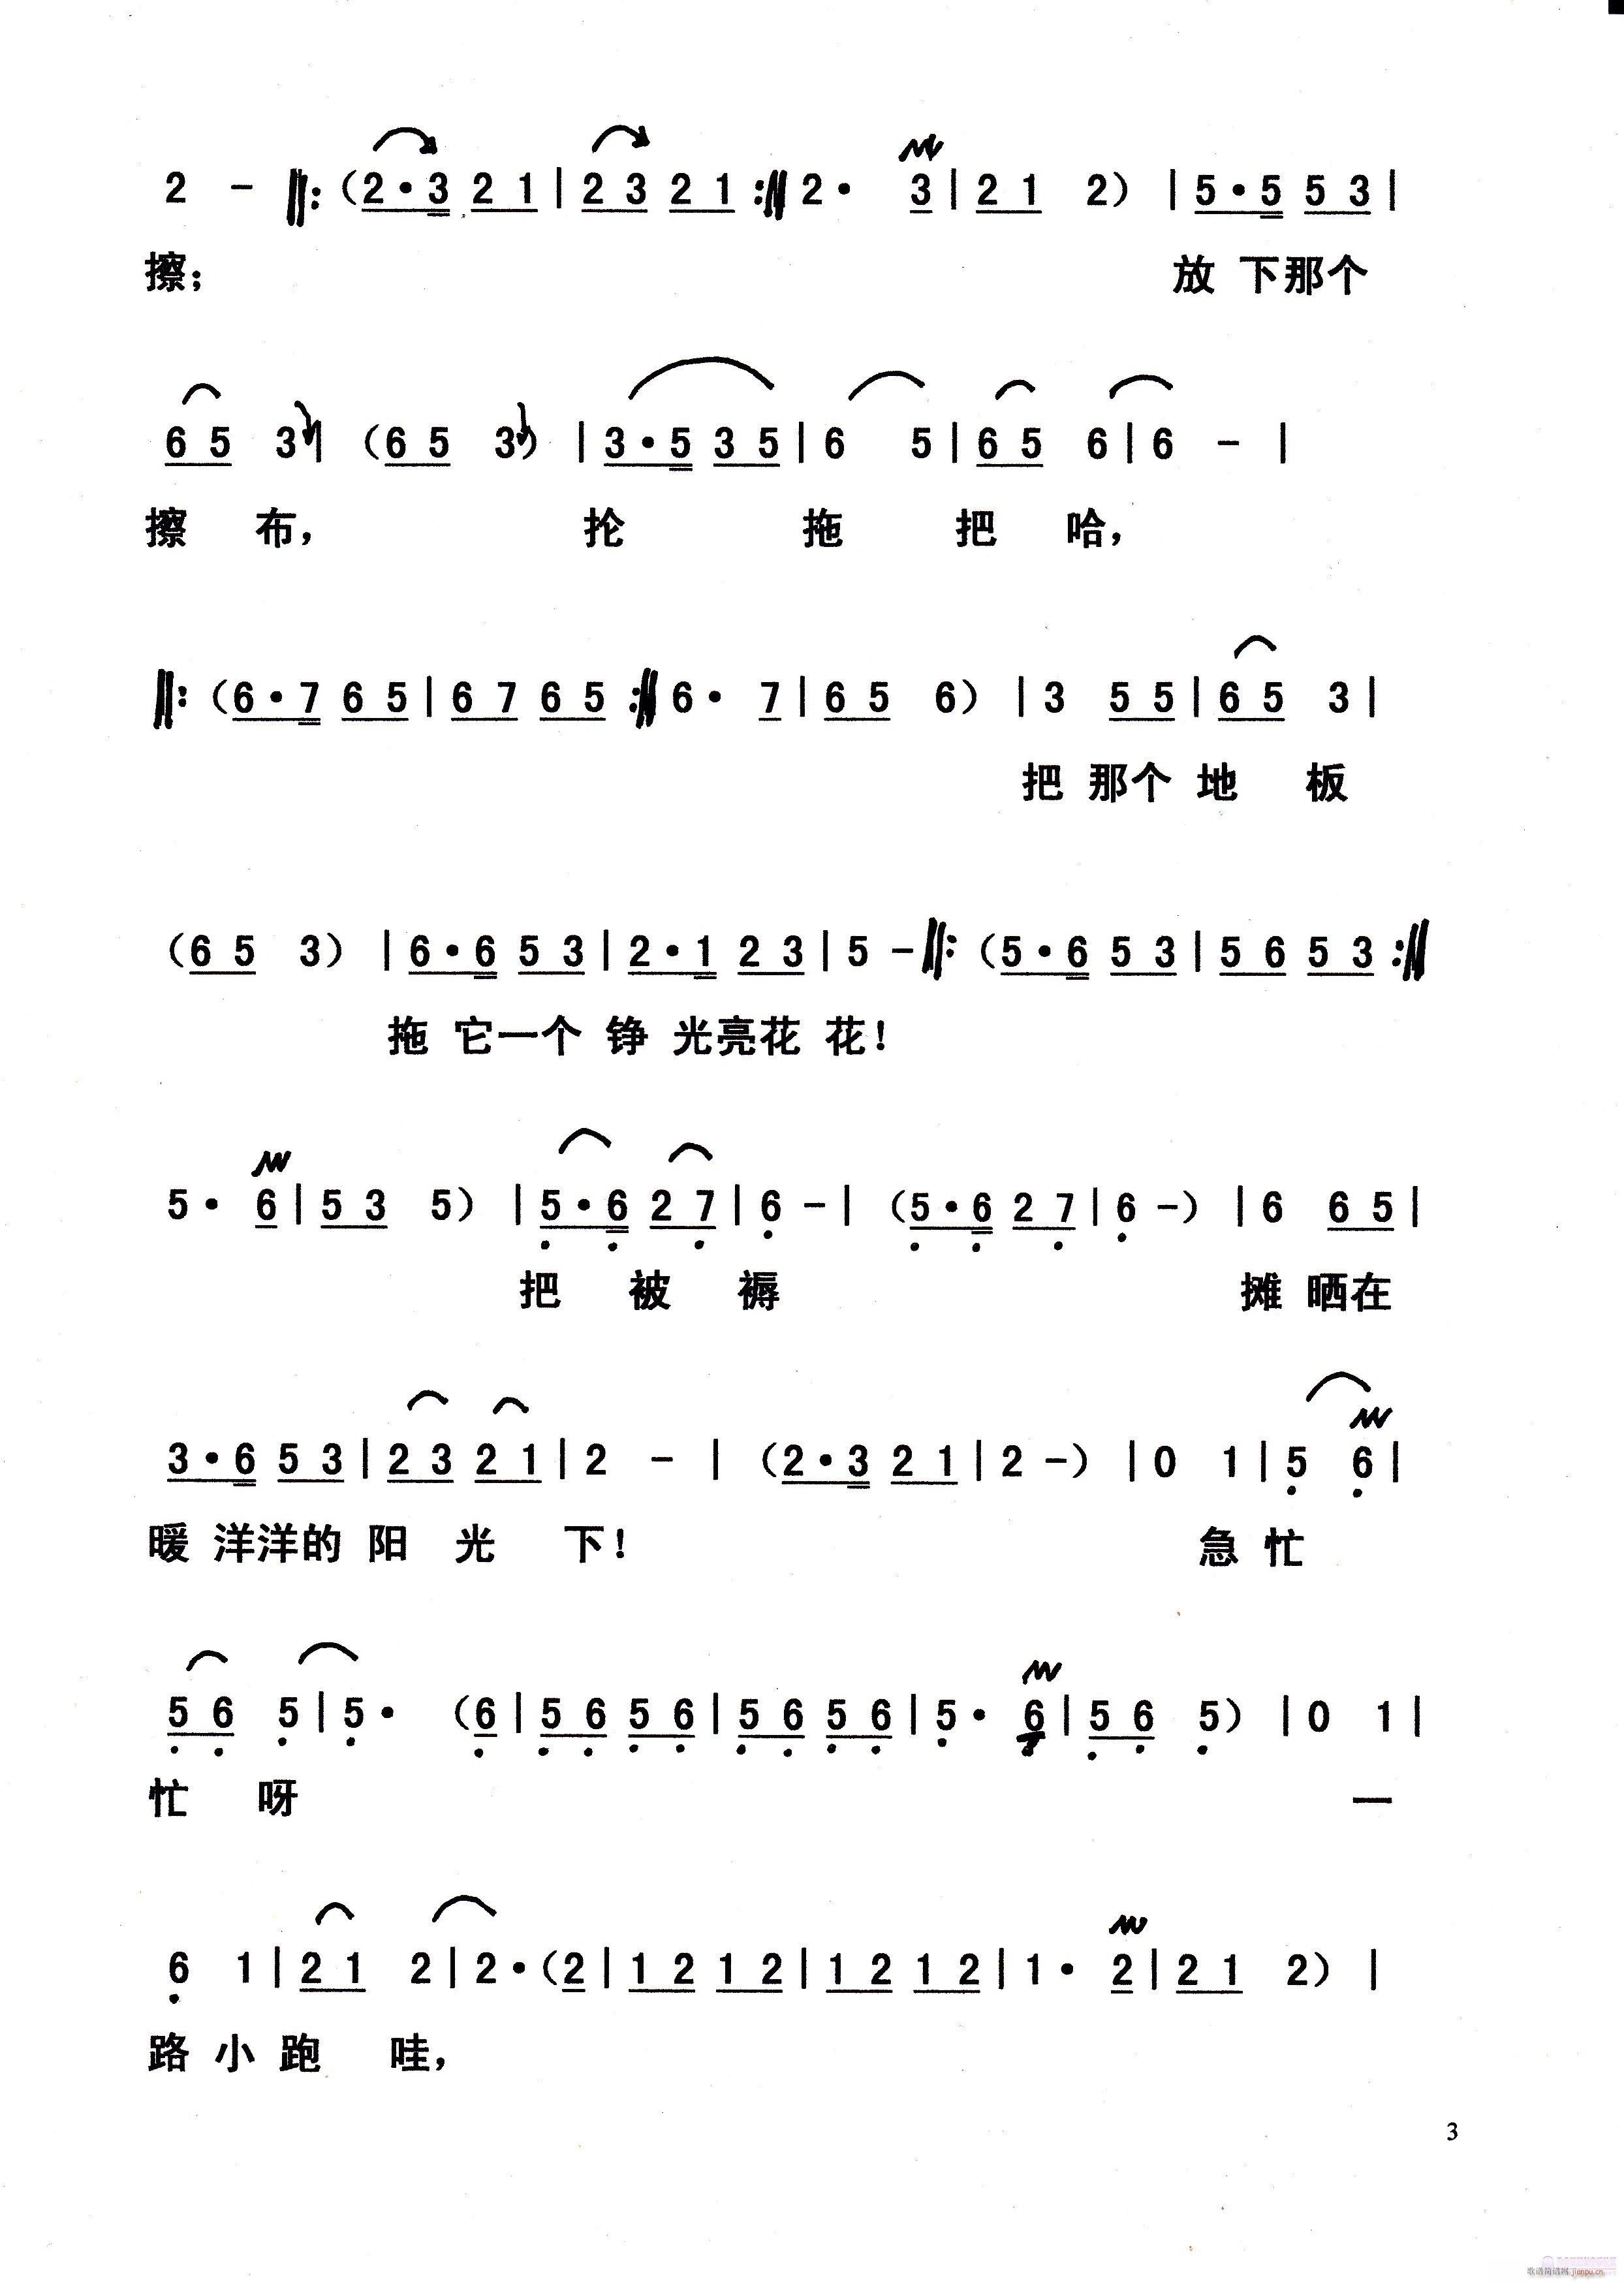 2 - ‖:（2·3 21|23 21:‖2· 3|21 2）|5·5 53|
擦； 放 下那个
65 3|（65 3）|3·5 35|6 5|65 6|6 -|
擦 布， 抡 拖 把 哈，
‖:（6·7 65|67 65:‖6· 7|65 6）|3 55|65 3|
把 那个 地 板
（65 3）|6·6 53|2·1 23|5 -‖:（5·6 53|56 53:‖
拖 它一个 铮 光亮花 花！
5· 6|53 5）|5·6 27|6 -|（5·6 27|6 -）|6 65|
把 被 褥 摊 晒在
3·6 53|23 21|2 -|（2·3 21|2 -）|0 1|5 6|
暖 洋洋的 阳 光 下！ 急 忙
56 5|5· （6|56 56|56 56|5· 6|56 5）|0 1|
忙 呀 一
6 1|21 2|2·（2|12 12|12 12|1· 2|21 2）|
路 小 跑 哇，
3
歌谱简谱网 jianpu.cn